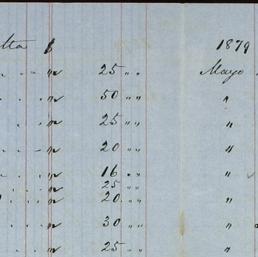 tta 1879
25 " " Mayo
50 " " "
25 " " "
20 " " "
16 " " "
25 " "
20 " " "
30 " " "
25 " " "